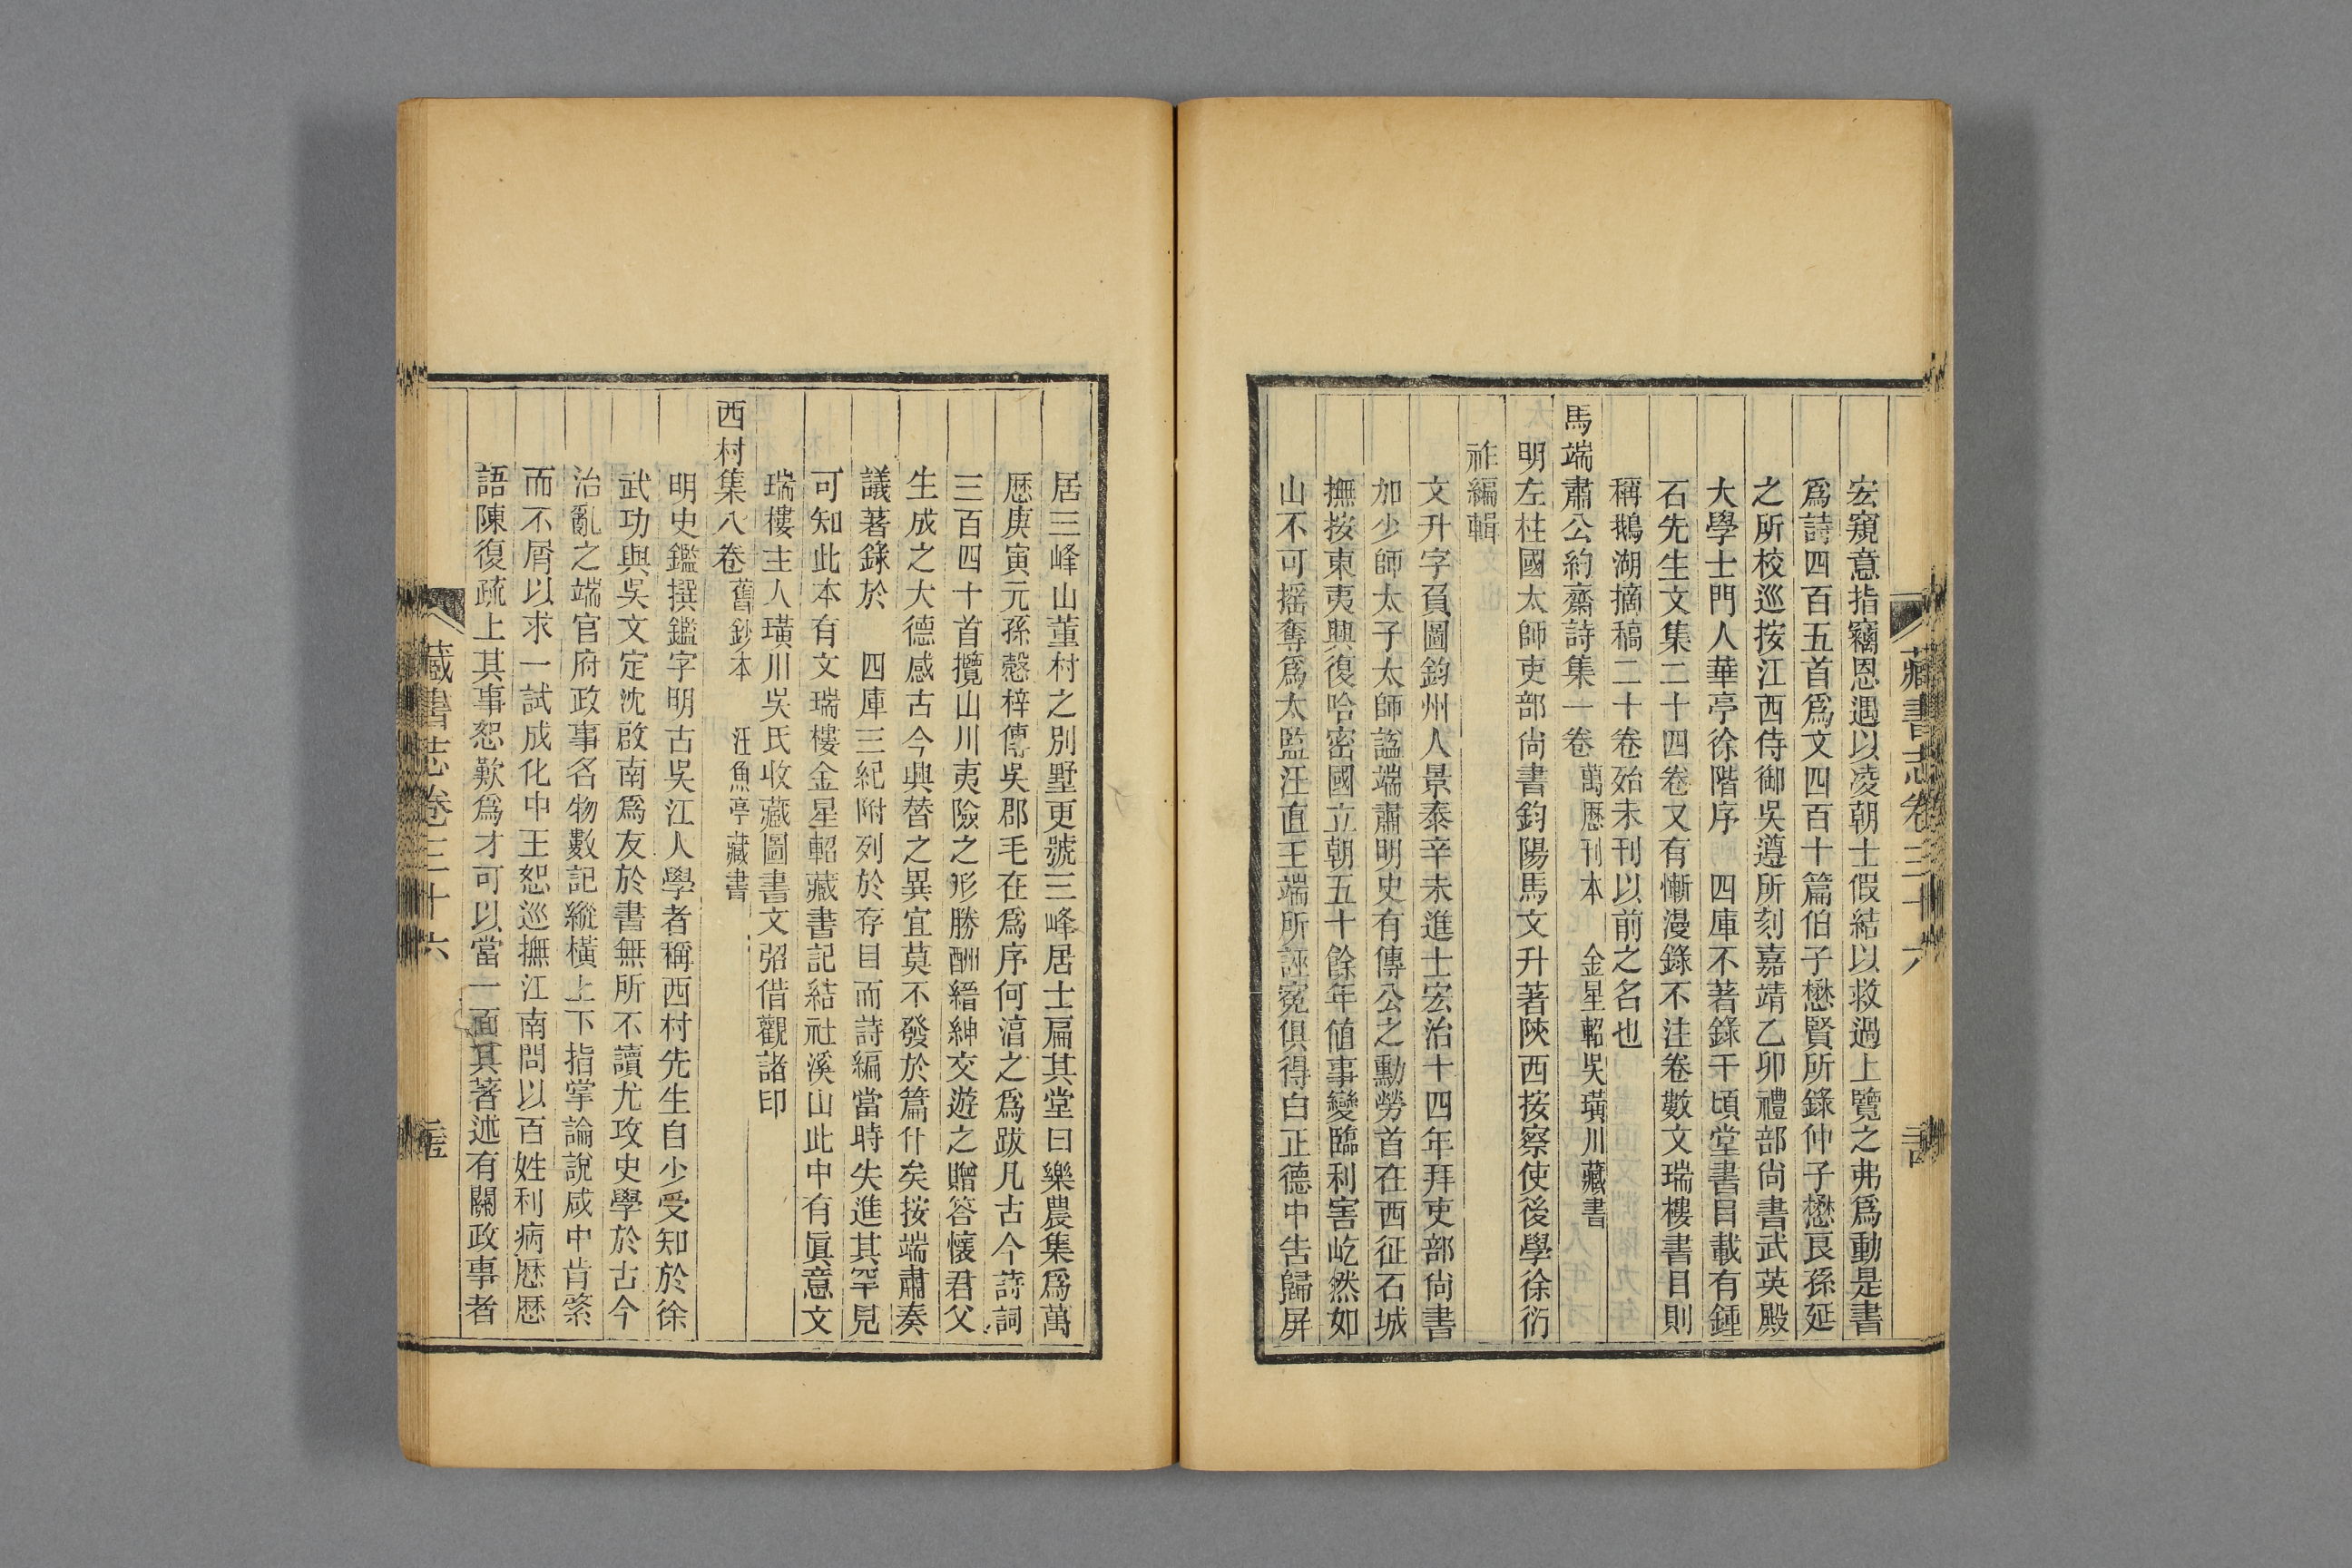 藏書志卷三十六
宏窺意指竊恩遇以凌朝士假結以救過上覽之弗爲動是書
爲詩四百五首爲文四百十篇伯子懋賢所錄仲子懋良孫延
之所校巡按江西侍御吳遵所刻嘉靖乙卯禮部尚書武英殿
大學士門人華亭徐階序　四庫不著錄千頃堂書目載有鍾
石先生文集二十四卷又有慚漫錄不注卷數文瑞樓書目則
稱鵝湖摘稿二十卷殆未刊以前之名也
馬端肅公約齋詩集一卷　萬歷刊本　金星軺吳璜川藏書
明左柱國太師吏部尚書鈞陽馬文升著陝西按察使後學徐衍
祚編輯
文升字負圖鈞州人景泰辛未進士宏治十四年拜吏部尚書
加少師太子太師諡端肅明史有傳公之勳勞首在西征石城
撫按東夷興復哈密國立朝五十餘年值事變臨利害屹然如
山不可搖奪爲太監汪直王端所誣寃俱得白正德中告歸屏
居三峰山董村之別墅更號三峰居士扁其堂曰樂農集爲萬
歷庚寅元孫愨梓傳吳郡毛在爲序何淯之爲跋凡古今詩詞
三百四十首攬山川夷險之形勝酬縉紳交遊之贈答懷君父
生成之大德感古今興替之異宜莫不發於篇什矣按端肅奏
議著錄於　四庫三紀附列於存目而詩編當時失進其罕見
可知此本有文瑞樓金星軺藏書記結社溪山此中有眞意文
瑞樓主人璜川吳氏收藏圖書文弨借觀諸印
西村集八卷　舊鈔本　汪魚亭藏書
明史鑑撰鑑字明古吳江人學者稱西村先生自少受知於徐
武功與吳文定沈啟南爲友於書無所不讀尤攻史學於古今
治亂之端官府政事名物數記縱橫上下指掌論說咸中肯綮
而不屑以求一試成化中王恕巡撫江南問以百姓利病歷歷
語陳復疏上其事恕歎爲才可以當一面其著述有關政事者
藏書志卷三十六